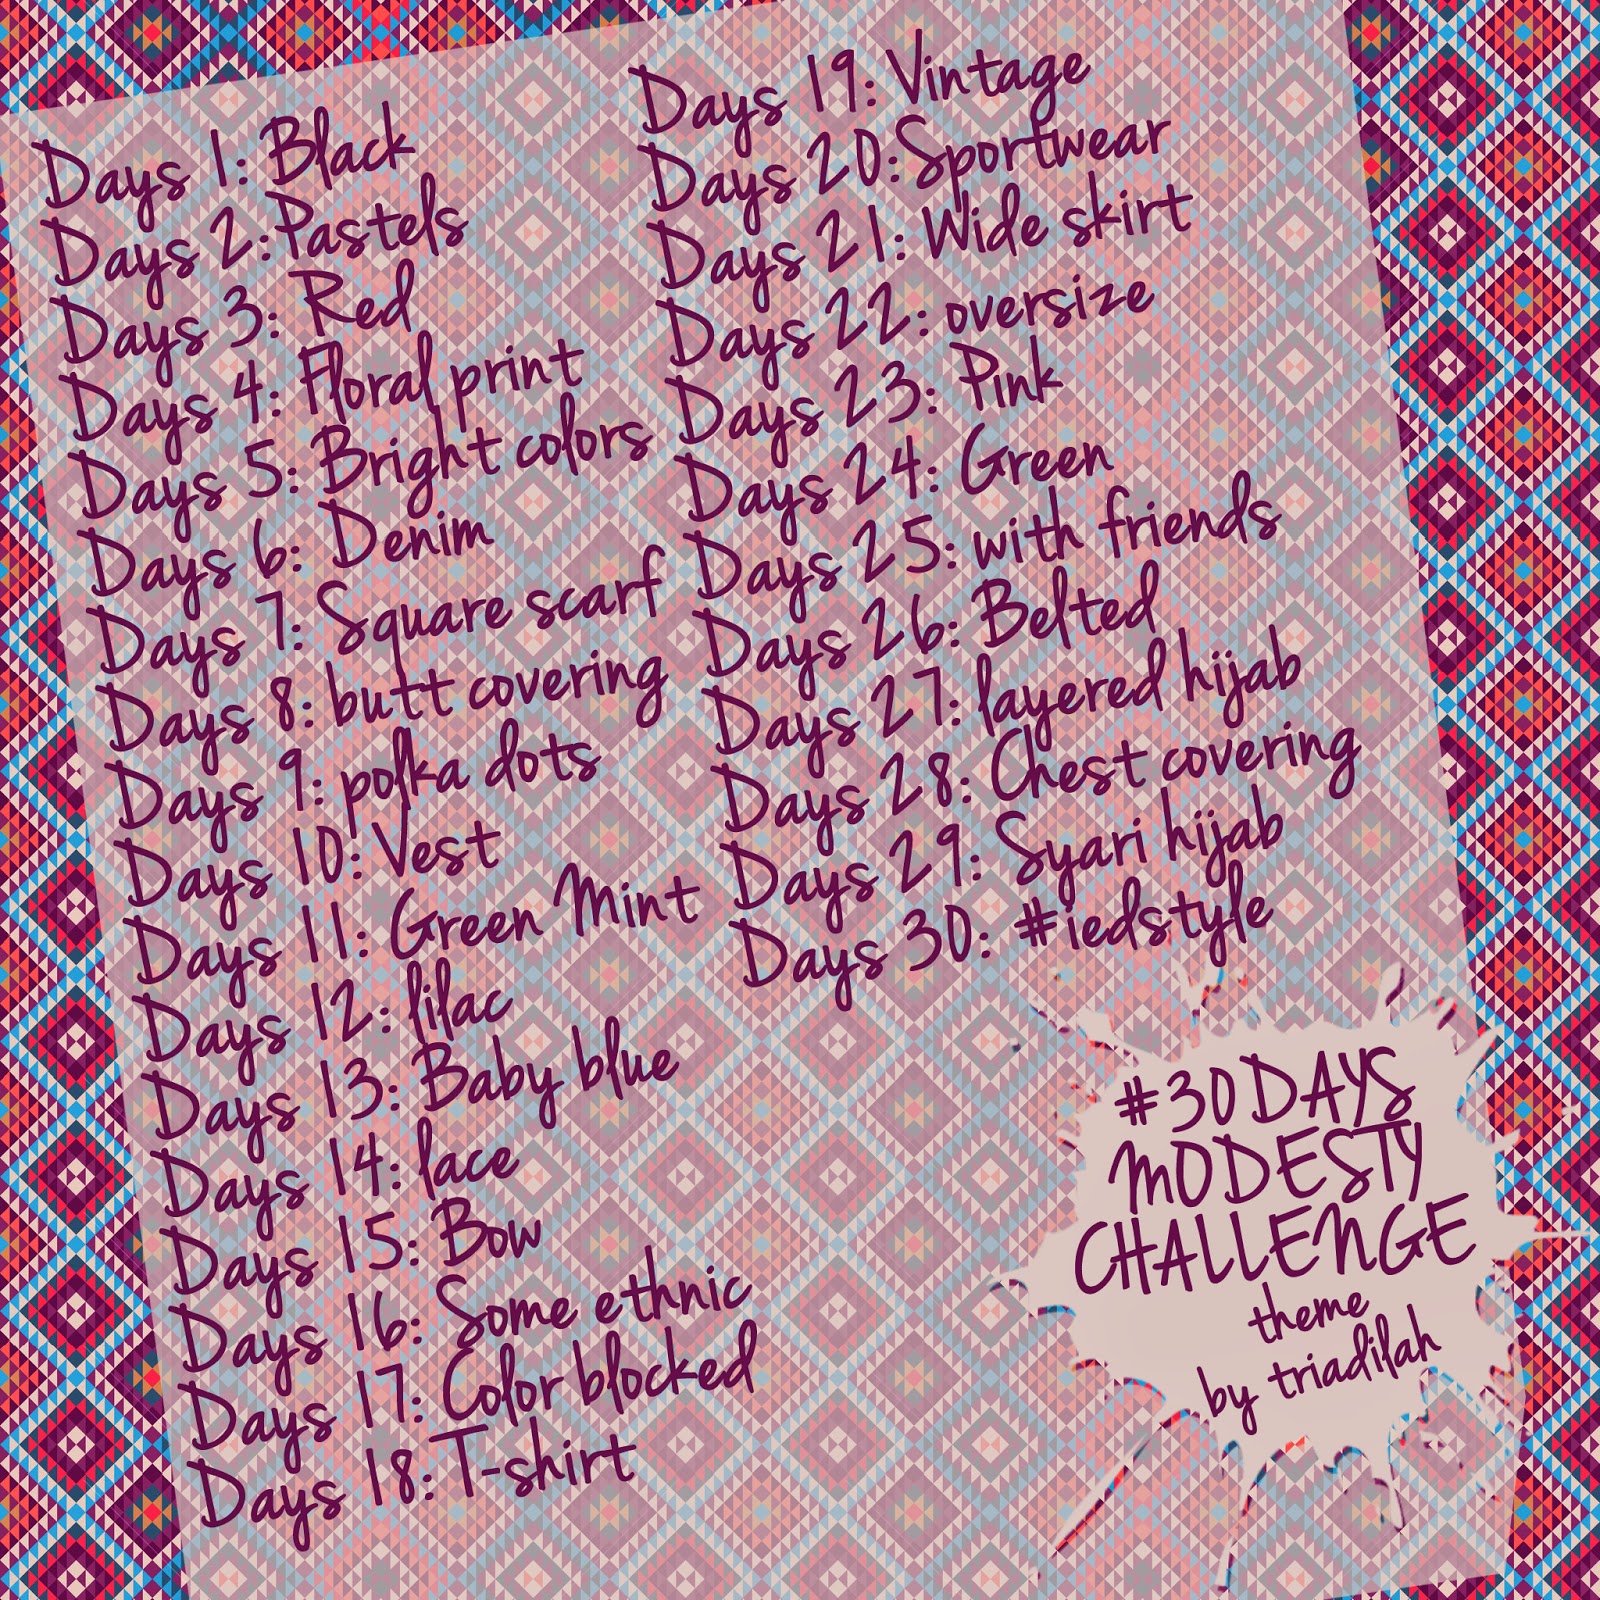 Days 1: Black
Days 2: Pastels
Days 3: Red
Days 4: Floral print
Days 5: Bright colors
Days 6: Denim
Days 7: Square scarf
Days 8: butt covering
Days 9: polka dots
Days 10: Vest
Days 11: Green Mint
Days 12: lilac
Days 13: Baby blue
Days 14: lace
Days 15: Bow
Days 16: Some ethnic
Days 17: Color blocked
Days 18: T-shirt
Days 19: Vintage
Days 20: Sportwear
Days 21: Wide skirt
Days 22: oversize
Days 23: Pink
Days 24: Green
Days 25: with friends
Days 26: Belted
Days 27: layered hijab
Days 28: Chest covering
Days 29: Syari hijab
Days 30: #iedstyle
#30 DAYS
MODESTY
CHALLENGE
theme
by triadilah